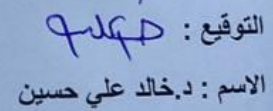 التوقيع :
الاسم : د.خالد علي حسين